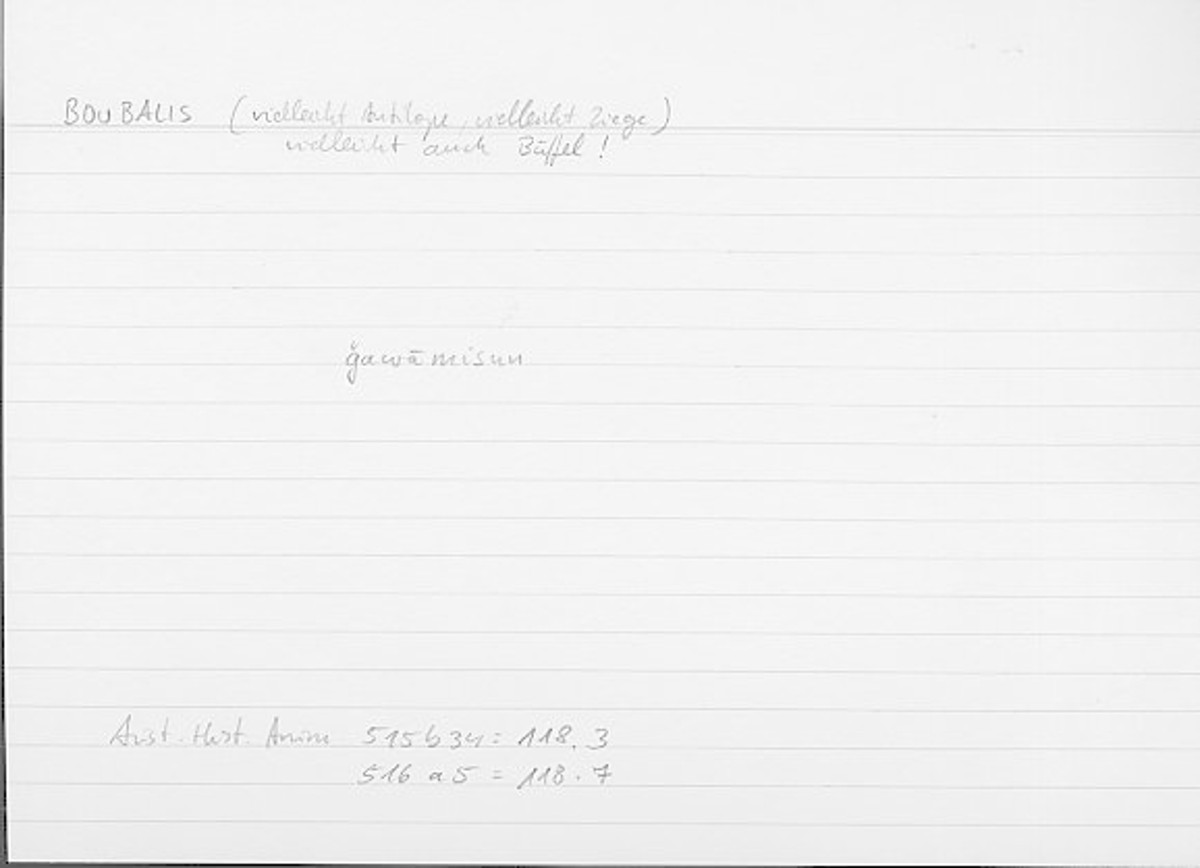 BOUBALIS (vielleicht Antilope, vielleicht Ziege)
vielleicht auch Büffel!
ǧawāmisun
Arist. Hist. Anim 515b34 = 118.3
516 a5 = 118.7